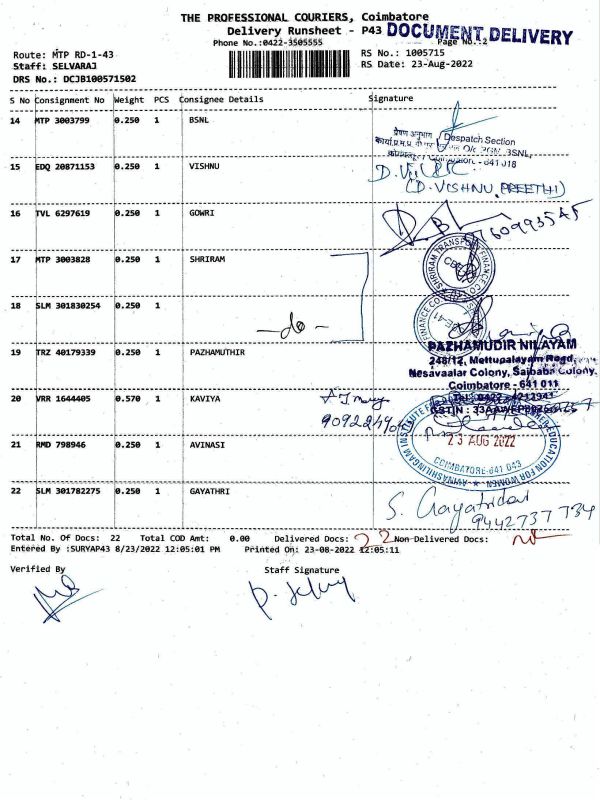 THE PROFESSIONAL COURIERS, Coimbatore
Delivery Runsheet - P43 DOCUMENT, DELIVERY
Phone No.:0422-3505555 Page No.:2
Route: MTP RD-1-43 RS No.: 1005715
Staff: SELVARAJ RS Date: 23-Aug-2022
DRS No.: DCJB100571502
S No Consignment No Weight PCS Consignee Details Signature
14 MTP 3003799 0.250 1 BSNL
प्रेषण अनुभाग Despatch Section
BSNL,
641 018
15 EDQ 20871153 0.250 1 VISHNU
(D.VISHNU PREETHI)
16 TVL 6297619 0.250 1 GOWRI
17 MTP 3003828 0.250 1 SHRIRAM
SHRIRAM TRANSPORT FINANCE CO
18 SLM 301830254 0.250
-do-
FINANCE CO
19 TRZ 40179339 0.250 1 PAZHAMUTHIR
PAZHAMUDIR NILAYAM
248/12, Mettupalayam Road,
Nesavaalar Colony, Saibaba Colony,
Coimbatore - 641 011
Tel: 0422 - 4212941
GSTIN :
20 VRR 1644405 0.570 1 KAVIYA
21 RMD 798946 0.250 1 AVINASI
23 AUG 2022
COIMBATORE-641 043
AVINASHILINGAM INSTITUTE FOR HIGHER EDUCATION FOR WOMEN
22 SLM 301782275 0.250 1 GAYATHRI
S. Gayatridevi
9442737734
Total No. Of Docs: 22 Total COD Amt: 0.00 Delivered Docs: 22 Non Delivered Docs:
Entered By :SURYAP43 8/23/2022 12:05:01 PM Printed On: 23-08-2022 12:05:11
Verified By Staff Signature